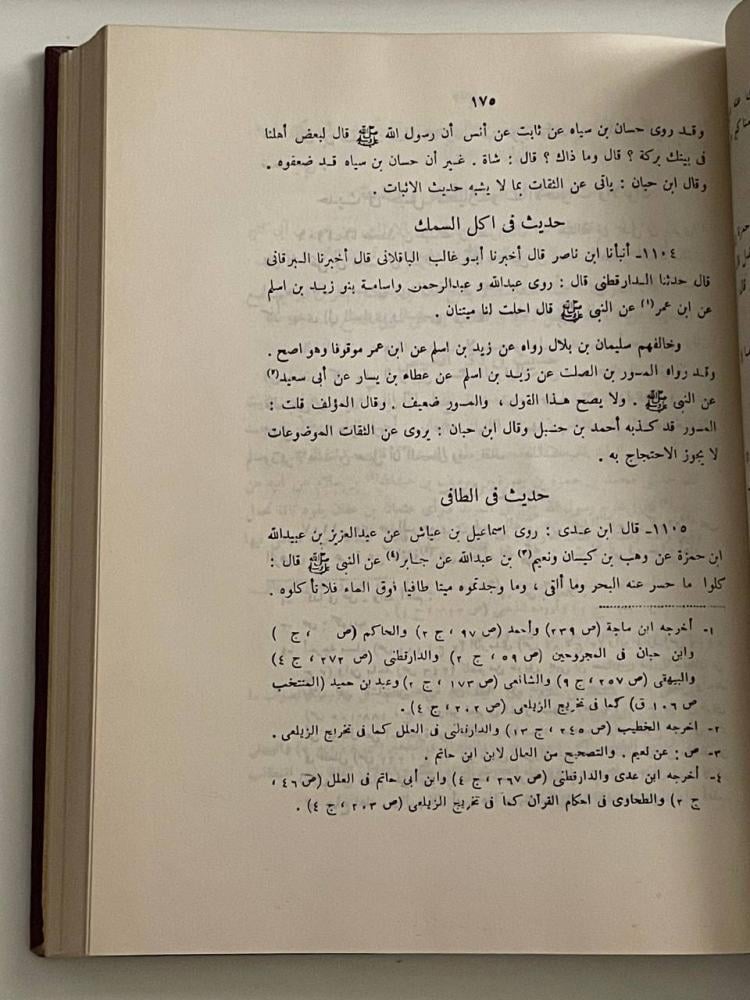 ١٧٥
وقد روى حسان بن سياه عن ثابت عن أنس أن رسول الله ﷺ قال لبعض أهلنا
فى بيتك بركة ؟ قال وما ذاك ؟ قال : شاة . غير أن حسان بن سياه قد ضعفوه .
وقال ابن حبان : ياتى عن الثقات بما لا يشبه حديث الاثبات .
حديث فى اكل السمك
١١٠٤ـ أنبأنا ابن ناصر قال أخبرنا أبو غالب الباقلانى قال أخبرنا البرقانى
قال حدثنا الدارقطنى قال : روى عبدالله و عبدالرحمن واسامة بنو زيد بن اسلم
عن ابن عمر(١) عن النبى ﷺ قال احلت لنا ميتتان .
وخالفهم سليمان بن بلال رواه عن زيد بن اسلم عن ابن عمر موقوفا وهو اصح .
وقد رواه المسور بن الصلت عن زيد بن اسلم عن عطاء بن يسار عن أبى سعيد(٢)
عن النبى ﷺ . ولا يصح هذا القول ، والمسور ضعيف . وقال المؤلف قلت :
المسور قد كذبه أحمد بن حنبل وقال ابن حبان : يروى عن الثقات الموضوعات
لا يجوز الاحتجاج به .
حديث فى الطافى
١١٠٥ـ قال ابن عدى : روى اسماعيل بن عياش عن عبدالعزيز بن عبيدالله
ابن حمزة عن وهب بن كيسان ونعيم(٣) بن عبدالله عن جابر(٤) عن النبى ﷺ قال :
كلوا ما حسر عنه البحر وما ألقى ، وما وجدتموه ميتا طافيا فوق الماء فلا تأكلوه .
١ـ أخرجه ابن ماجة (ص ٢٣٩) وأحمد (ص ٩٧ ، ج ٢) والحاكم (ص ، ج )
وابن حبان فى المجروحين (ص ٥٩ ، ج ٢) والدارقطنى (ص ٢٧٢ ، ج ٤)
والبيهقى (ص ٢٥٧ ، ج ٩) والشافعى (ص ١٧٣ ، ج ٢) وعبد بن حميد (المنتخب
ص ١٠٦ ق) كما فى تخريج الزيلعى (ص ٢٠٢ ، ج ٤) .
٢ـ اخرجه الخطيب (ص ٢٤٥ ، ج ١٣) والدارقطنى فى العلل كما فى تخريج الزيلعى .
٣ـ ص : عن لعيم . والتصحيح من العال لابن ابن حاتم .
٤ـ أخرجه ابن عدى والدارقطنى (ص ٢٦٧ ، ج ٤) وابن أبى حاتم فى العلل (ص ٤٦ ،
ج ٢) والطحاوى فى احكام القرآن كما فى تخريج الزيلعى (ص ٢٠٣ ، ج ٤) .